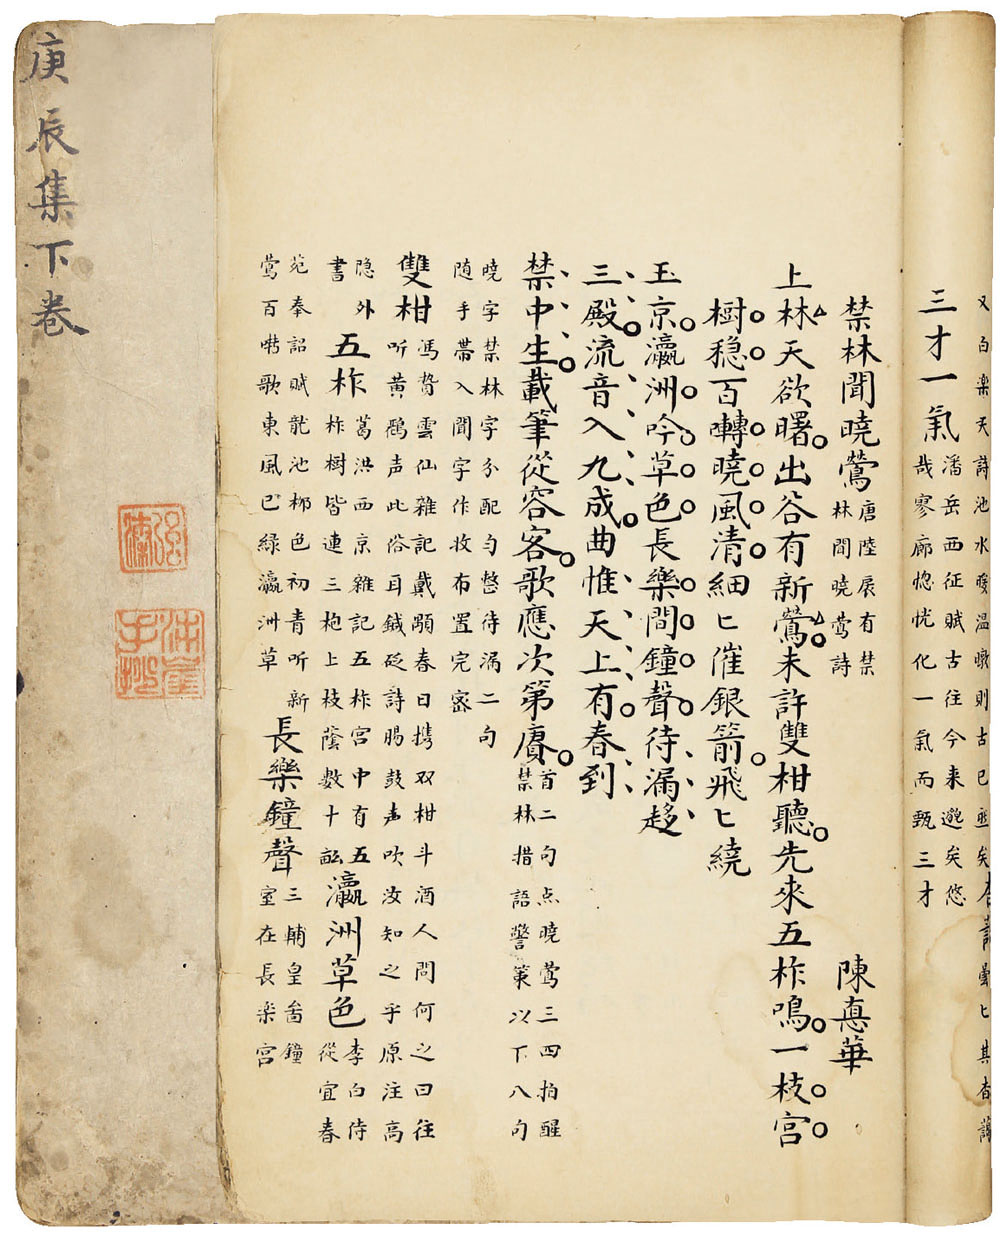 又白楽天詩池水暖温暾則古已
三才一氣
潘岳西征賦古往今来邈矣悠
哉寥廓惚恍化一氣而甄三才
禁林聞曉鶯
唐陸扆有禁
林聞曉莺詩
陳惪華
上林天欲曙出谷有新鶯未許雙柑聽先來五柞鳴一枝宮
樹穏百囀曉風清細匕催銀箭飛匕繞
玉京瀛洲吟草色長樂間鐘聲待漏趍
三殿流音入九成曲惟天上有春到
禁中生載筆從容客歌應次第賡
首二句点曉莺三四拍醒
禁林措語警策以下八句
曉字禁林字分配匀整待漏二句
随手帯入聞字作收布置完密
雙柑
馮贄雲仙雑記戴顒春日携双柑斗酒人問何之曰往
听黄鹂声此俗耳鍼砭詩腸鼓声吹汝知之乎原注高
隐外
書
五柞
葛洪西京雜記五柞宮中有五
柞樹皆連三抱上枝蔭数十畝
瀛洲草色
李白侍
從宜春
苑奉詔賦龍池栁色初青听新
莺百囀歌東風已緑瀛洲草
長樂鐘聲
三輔皇啚鐘
室在長楽宮
庚辰集下卷